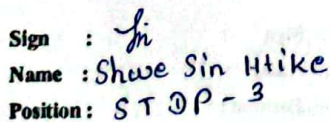 Sign :
Name : Shwe Sin Htike
Position : STDP-3